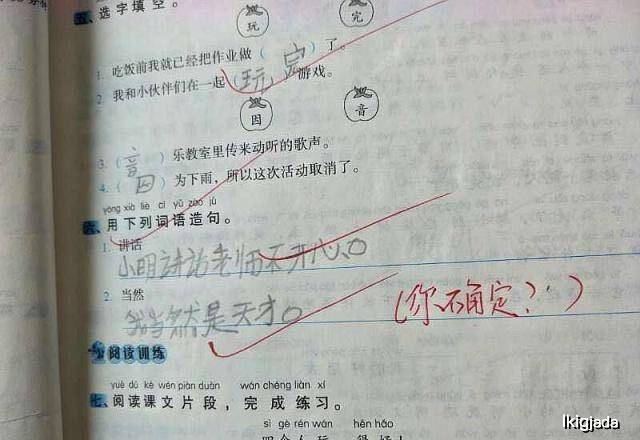 五、选字填空。
玩 完
1. 吃饭前我就已经把作业做（完）了。
2. 我和小伙伴们在一起（玩）游戏。
因 音
3.（音）乐教室里传来动听的歌声。
4.（因）为下雨，所以这次活动取消了。
yòng xià liè cí yǔ zào jù
六、用下列词语造句。
1. 讲话
小明讲话老师不开心。
2. 当然
我当然是天才。
（你确定？）
阅读训练
yuè dú kè wén piàn duàn wán chéng liàn xí
七、阅读课文片段，完成练习。
sì gè rén wán hěn hǎo
lkigjada